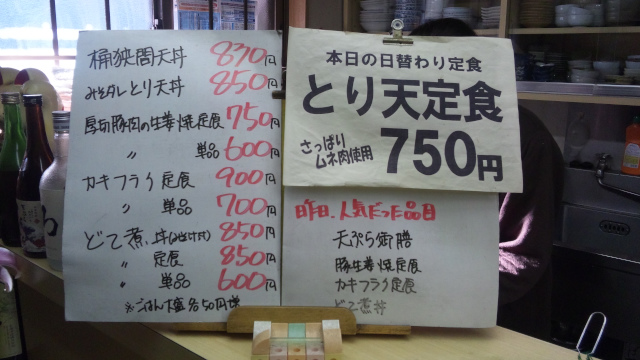 桶狭間天丼 830円
みそダレとり天丼 850円
厚切豚肉の生姜焼定食 750円
〃 単品 600円
カキフライ定食 900円
〃 単品 700円
どて煮 丼(みそ汁付) 850円
〃 定食 850円
〃 単品 600円
※ごはん大盛各50円増
本日の日替わり定食
とり天定食
さっぱり
ムネ肉使用
750円
昨日、人気だった品目
天ぷら御膳
豚生姜焼定食
カキフライ定食
どて煮丼